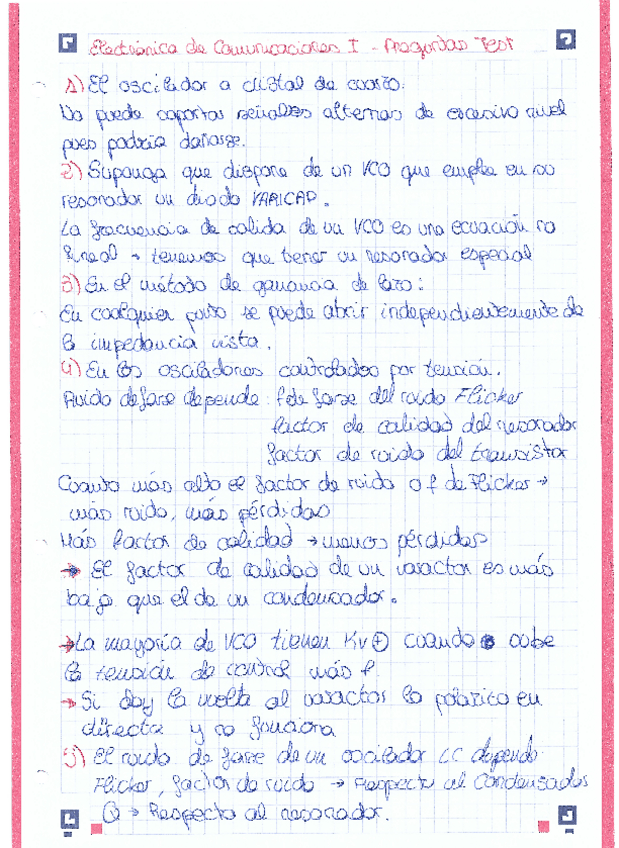 Electrónica de Comunicaciones I - Preguntas Test
1) El oscilador a cristal de cuarzo:
No puede soportar señales alternas de excesivo nivel
pues podría dañarse.
2) Suponga que dispone de un VCO que emplea en su
resonador un diodo VARICAP.
La frecuencia de salida de un VCO es una ecuación no
lineal → tenemos que tener un resonador especial
3) En el método de ganancia de lazo:
En cualquier punto se puede abrir independientemente de
la impedancia vista.
4) En los osciladores controlados por tensión.
Ruido de fase depende: f de fase del ruido Flicker
factor de calidad del resonador
factor de ruido del transistor
Cuanto más alto el factor de ruido o f de Flicker →
más ruido, más pérdidas
Más factor de calidad → menos pérdidas
→ El factor de calidad de un varactor es más
bajo que el de un condensador.
→ La mayoría de VCO tienen Kv⊕ cuando sube
la tensión de control más f.
→ Si doy la vuelta al varactor lo polarizo en
directa y no funciona
5) El ruido de fase de un oscilador LC depende
Flicker, factor de ruido → Respecto al condensador
Q → Respecto al resonador.